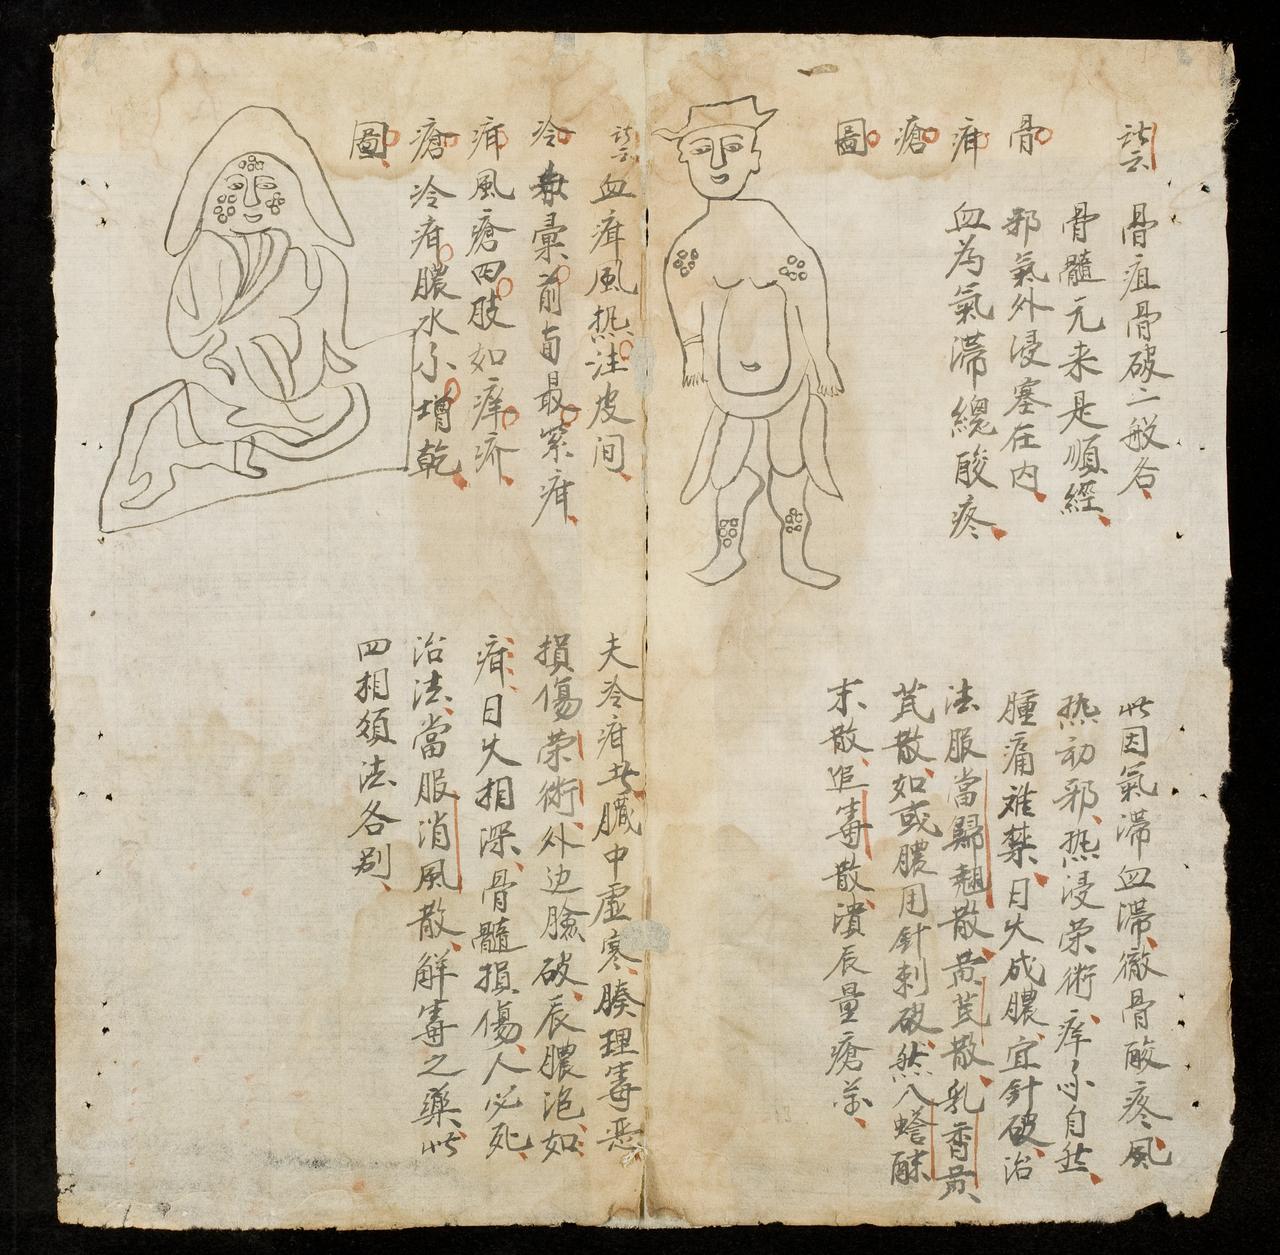 骨疳瘡圖
詩云
骨疽骨破二般各
骨髓元来是順經
邪氣外浸塞在内
血為氣滯緫酸疼
此因氣滯血滯徹骨酸疼風
热初邪热浸荣術痒不自然
腫痛难禁日久成膿宜針破治
法服當歸翘散黄芪散乳香黄
芪散如或膿用針刺破然八蟾酥
末散追毒散潰辰量瘡
冷疳瘡圖
詩云
血疳風热注皮间
毒彙前甸最紧疳
風瘡四肢如痒疥
冷疳膿水不增乾
夫冷疳此臓中虚寒腠理毒恶
損傷荣術外边臉破辰膿泡如
疳日久相深骨髓損傷人必死
治法當服消風散解毒之藥此
四相須法各别